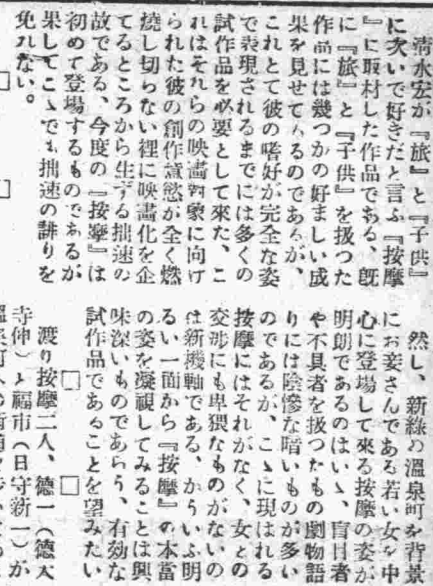 清水宏が『旅』と『子供』
に次いで好きだと言ふ『按摩
』に取材した作品である、既
に『旅』と『子供』を扱つた
作品には幾つかの好ましい成
果を見せてゐるのであるが、
これとて彼の嗜好が完全な姿
で表現されるまでには多くの
試作品を必要として來た、こ
れはそれらの映畫對象に向け
られた彼の創作意慾が全く燃
燒し切らない裡に映畫化を企
てるところから生ずる拙速の
故である、今度の『按摩』は
初めて登場するものであるが
果してこゝでも拙速の誹りを
免れない。
□　□
然し、新綠の溫泉町を背景
にお妾さんである若い女を中
心に登場して來る按摩の姿が
明朗であるのはいゝ、盲目者
や不具者を扱つたもの劇物語
りには陰慘な暗いものが多い
のであるが、こゝに現はれる
按摩にはそれがなく、女との
交渉にも卑猥なものがないの
は新機軸である、かういふ明
るい一面から『按摩』の本當
の姿を凝視してみることは興
味深いものであらう、有効な
試作品であることを望みたい
□　□
渡り按摩二人、德一（德大
寺伸）と福市（日守新一）が